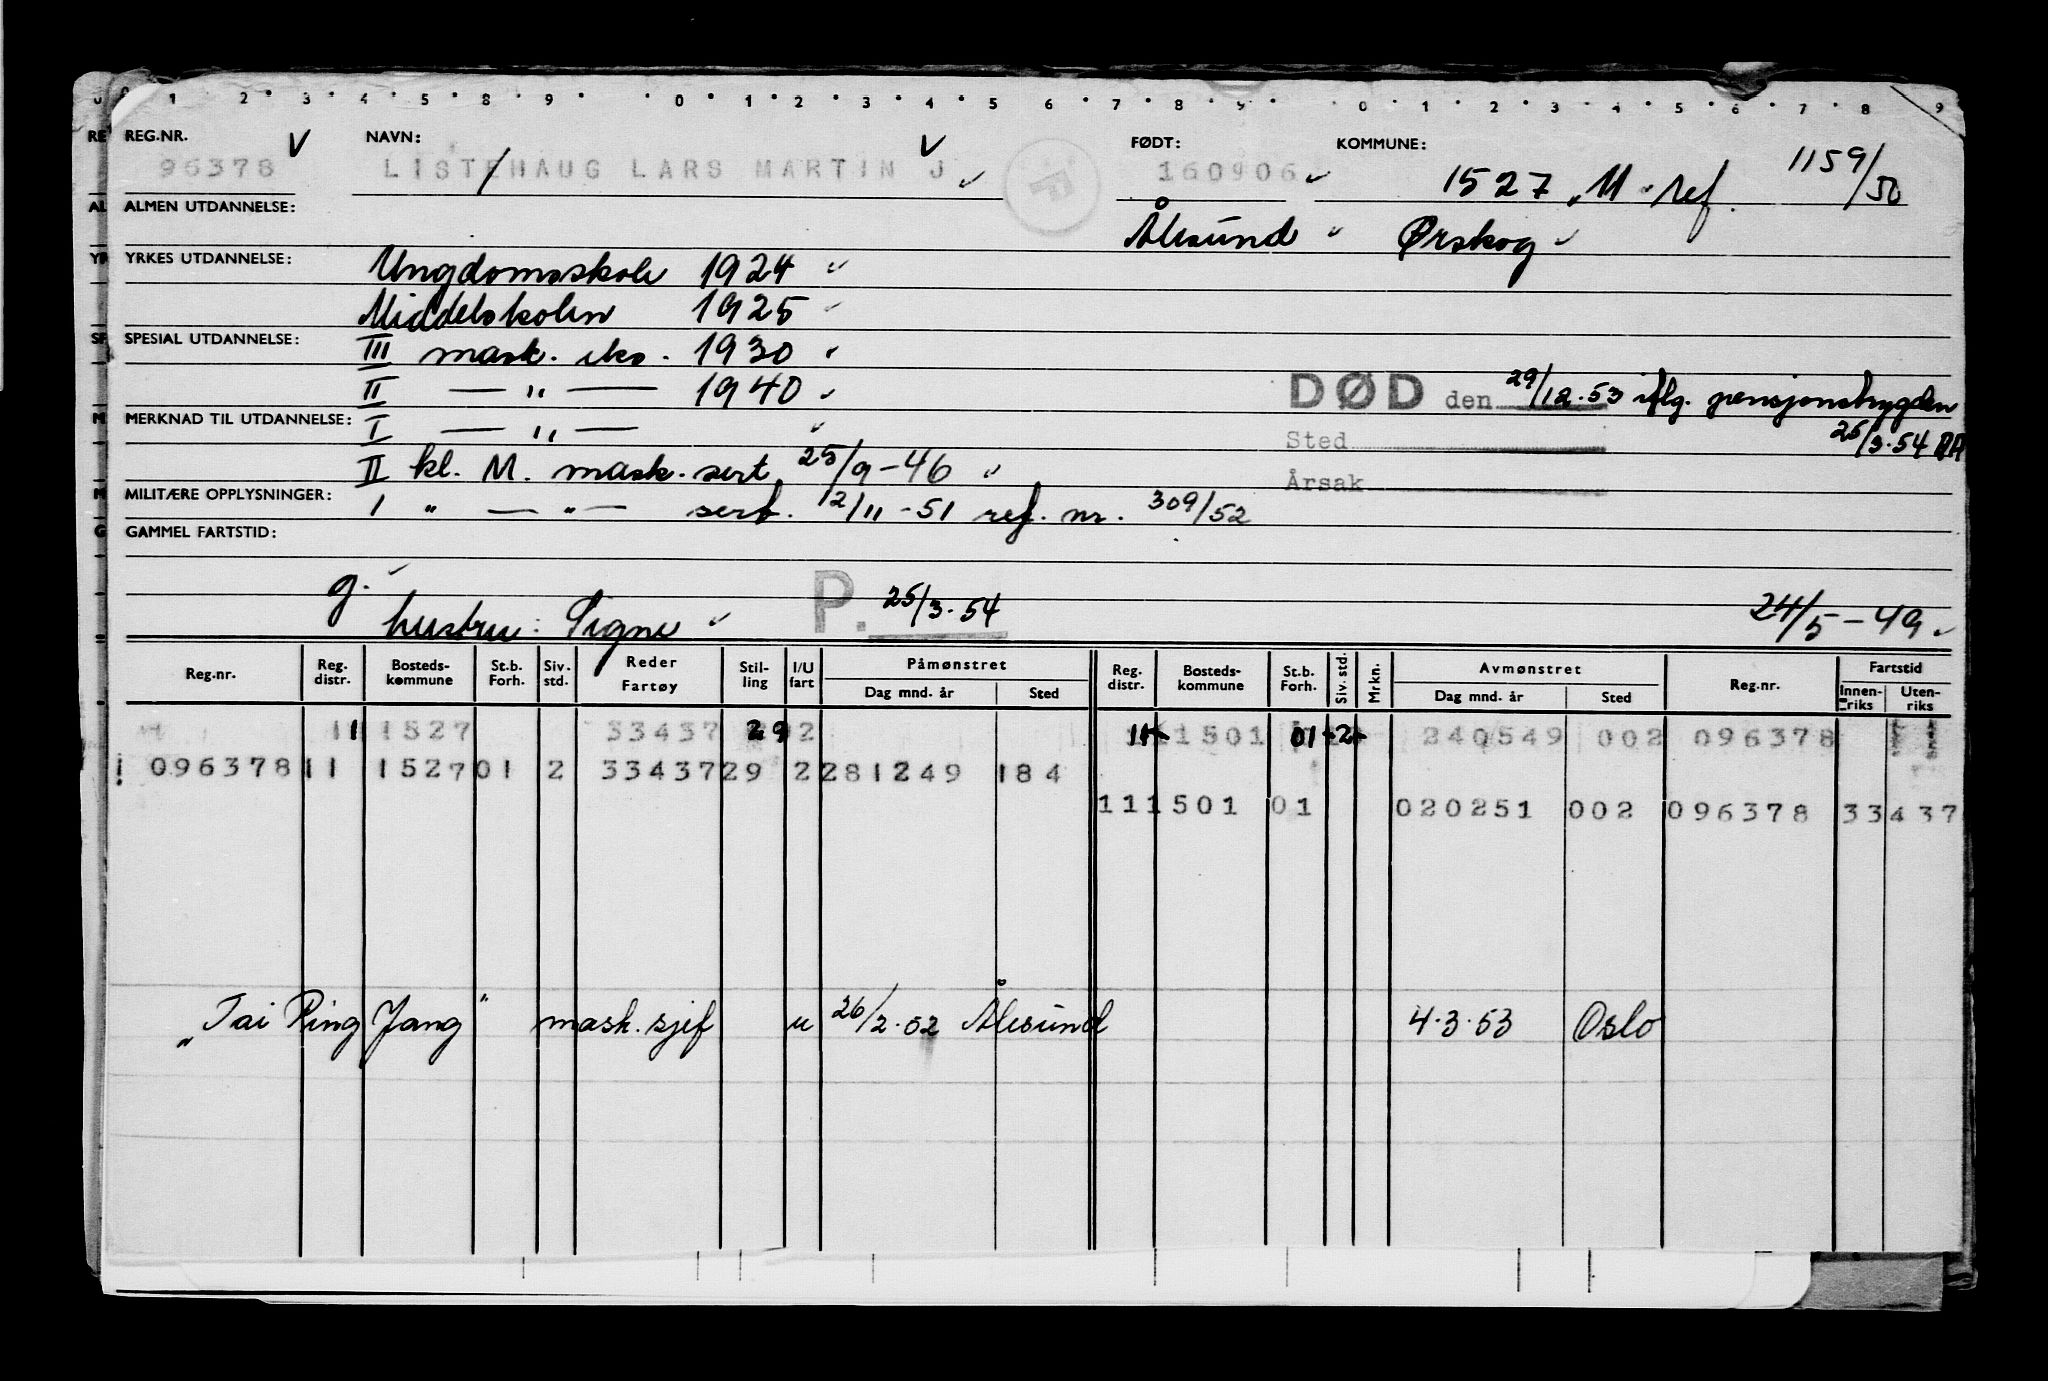 0 1 2 3 4 5 8 9 0 1 2 3 4 5 6 7 8 9 0 1 2 3 4 5 6 7 8 9
RE REG.NR. NAVN: FØDT: KOMMUNE:
96378 LISTEHAUG LARS MARTIN J 160906 1527 M. ref. 1159/50
AL ALMEN UTDANNELSE: Ålesund Ørskog
YR YRKES UTDANNELSE: Ungdomsskole 1924
Middelskolen 1925
SP SPESIAL UTDANNELSE: III mask. eks. 1930
II — " — 1940
DØD den 29/12.53 iflg. pensjonstrygden
M MERKNAD TIL UTDANNELSE: I — " —
Sted 25/3.54
II kl. M. mask. sert 25/9-46
Årsak
M MILITÆRE OPPLYSNINGER: I " — " — sert. 12/11-51 ref. nr. 309/52
G GAMMEL FARTSTID:
g.
hustru: Signe P. 25/3.54 24/5-49
Reg.nr. Reg. distr. Bosteds-kommune St.b. Forh. Siv. std. Reder Fartøy Stil-ling I/U fart Påmønstret Dag mnd. år Sted Reg. distr. Bosteds-kommune St.b. Forh. Siv. std. Mrkn. Avmønstret Dag mnd. år Sted Reg.nr. Fartstid Innen-riks Uten-riks
11 1527 33437 29 2 11 1501 01 2 240549 002 096378
096378 11 1527 01 2 33437 29 2 281249 184
11 1501 01 020251 002 096378 33437
"Tai Ping Jang" mask.sjef u 26/2.52 Ålesund 4.3.53 Oslo